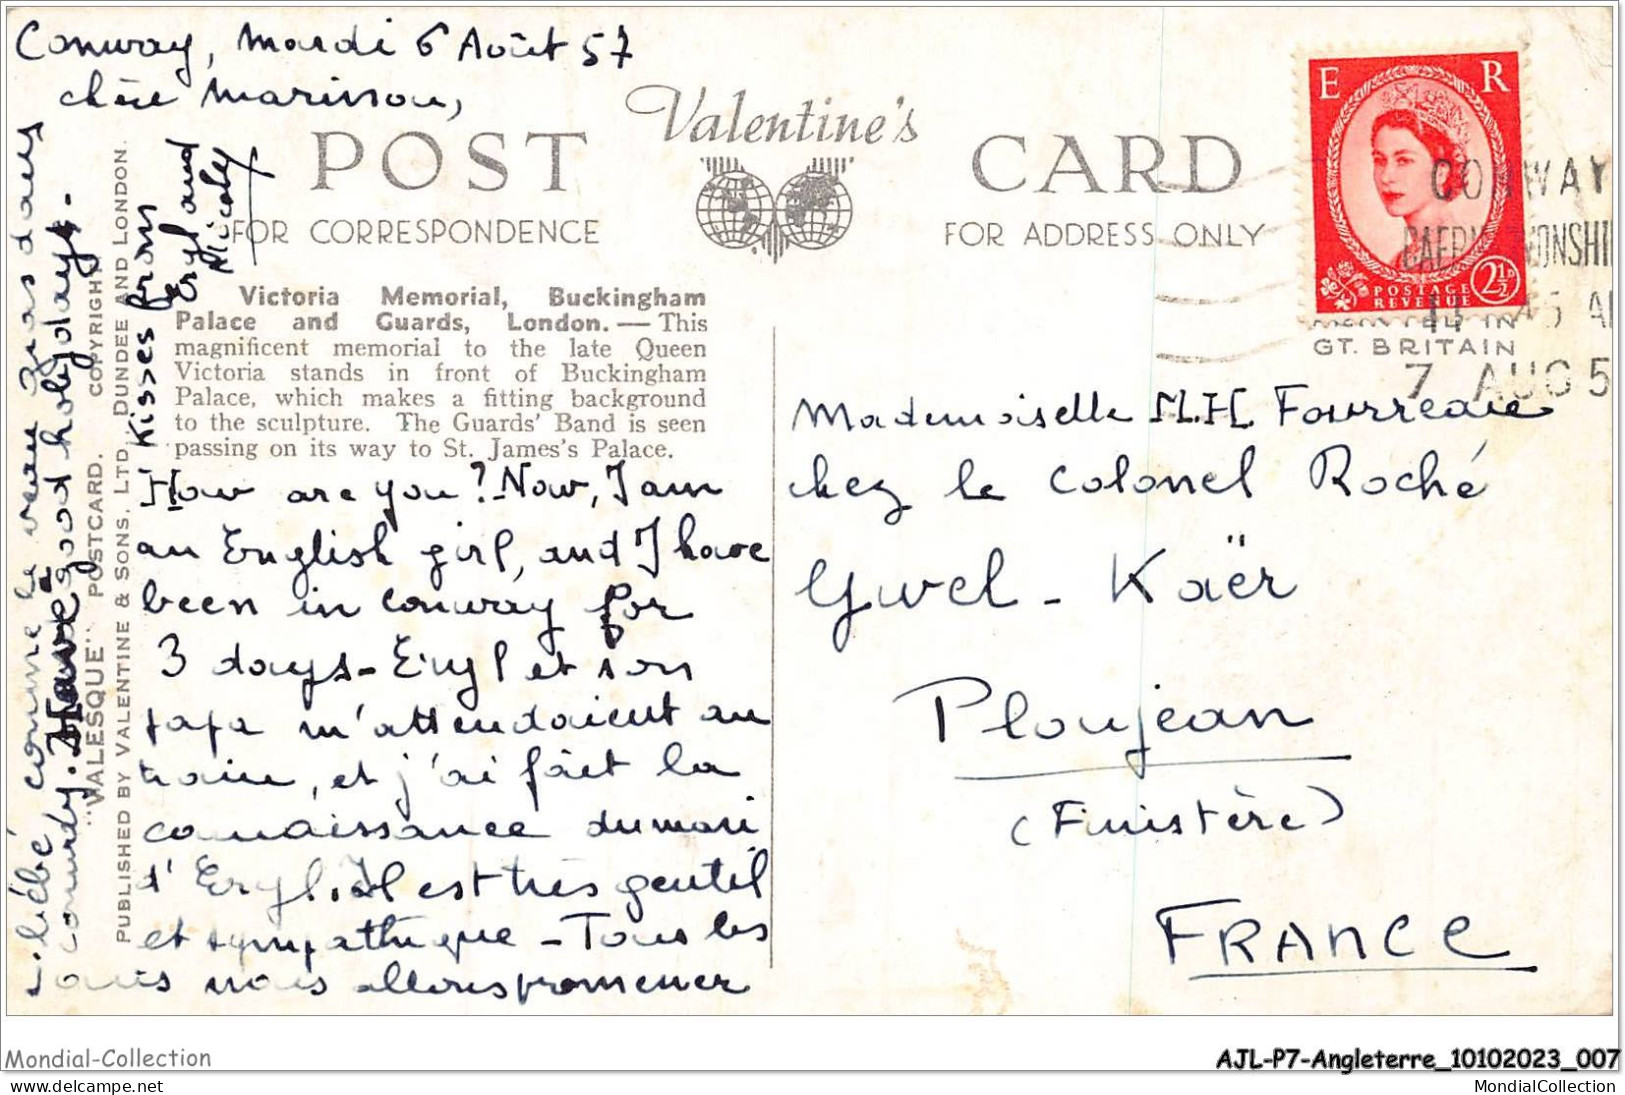 Conway, Mardi 6 Août 57
chère Marinou,
POST
Valentine's
CARD
FOR CORRESPONDENCE
FOR ADDRESS ONLY
E R
POSTAGE
REVENUE
2½D
CONWAY
CAERNARVONSHI
45 A
7 AUG 5
PRINTED IN
GT. BRITAIN
Victoria Memorial, Buckingham
Palace and Guards, London. — This
magnificent memorial to the late Queen
Victoria stands in front of Buckingham
Palace, which makes a fitting background
to the sculpture. The Guards' Band is seen
passing on its way to St. James's Palace.
How are you? Now, I am
an English girl, and I have
been in Conway for
3 days - Eryl et son
papa m'attendaient au
train, et j'ai fait la
connaissance du mari
d'Eryl. Il est très gentil
et sympathique - Tous les
nous allons promener
bébé, comme le veau gras dans
Conwady. Have good holydays -
Kisses from
Eryl and
Nicoley
"VALESQUE" POSTCARD. COPYRIGHT
PUBLISHED BY VALENTINE & SONS, LTD., DUNDEE AND LONDON.
Mademoiselle M.H. Fourreau
chez le Colonel Roché
Gwel - Kaër
Ploujean
(Finistère)
FRANCE
Mondial-Collection
AJL-P7-Angleterre_10102023_007
delcampe.net
MondialCollection